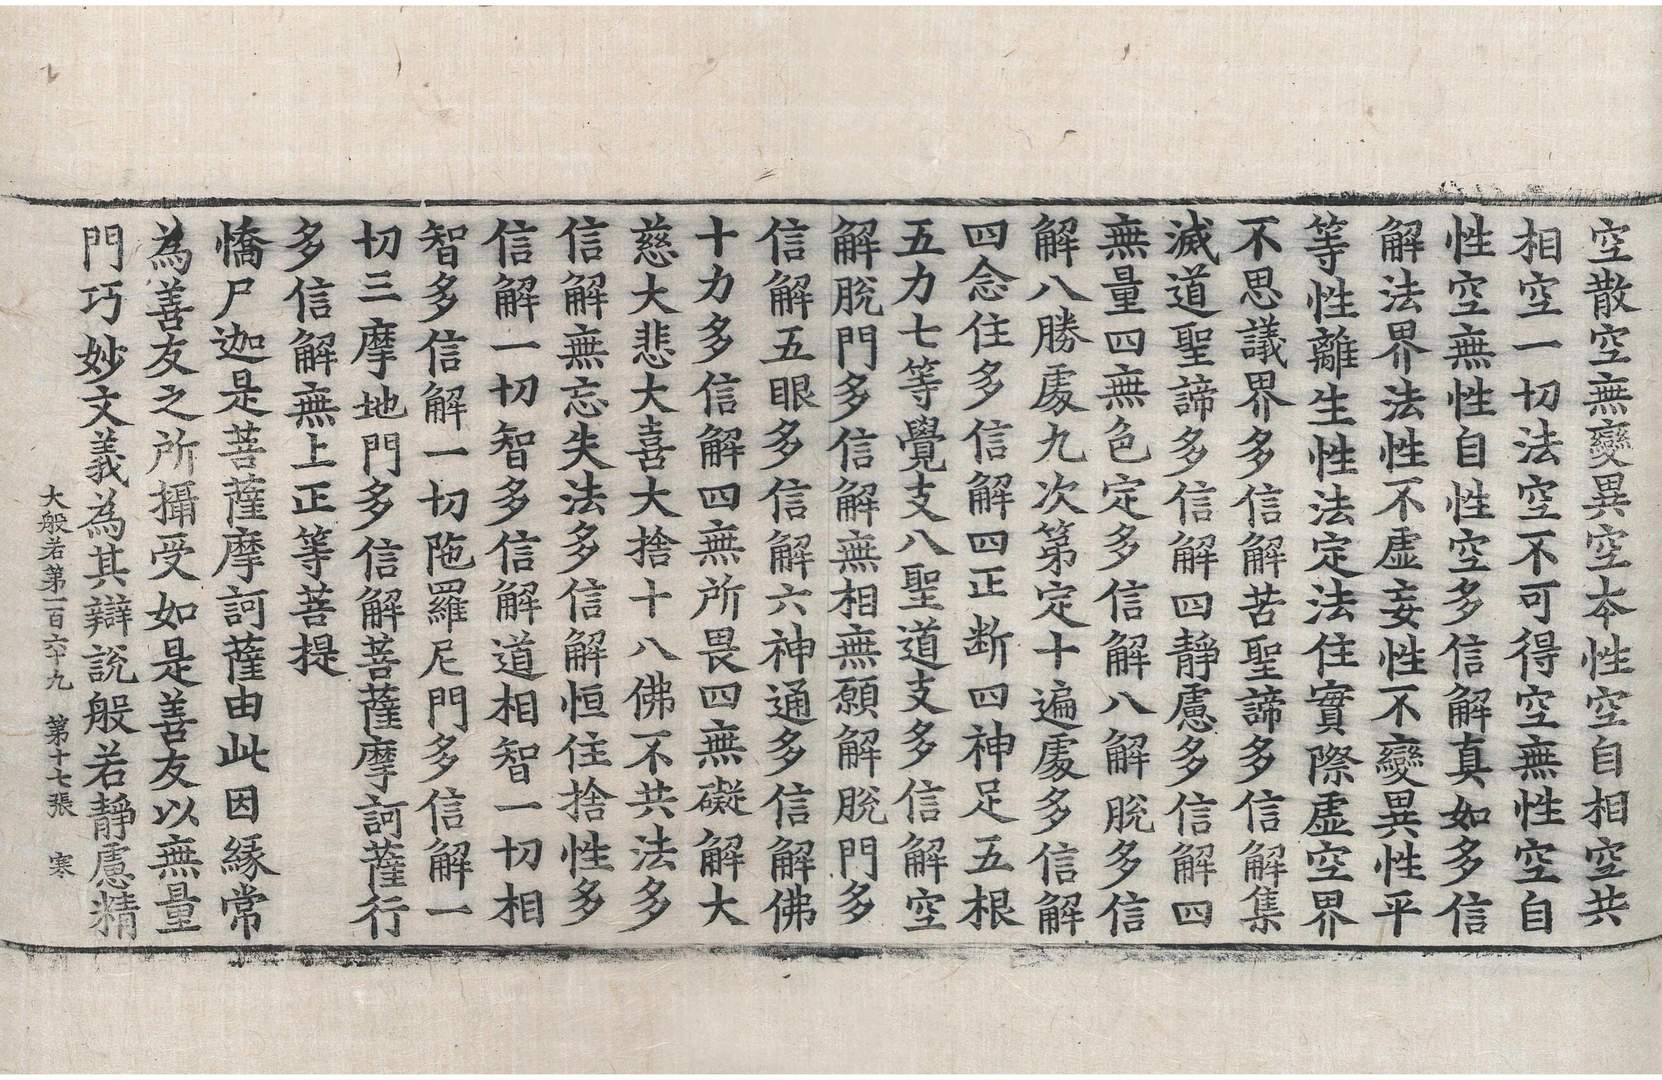 空散空無變異空本性空自相空共
相空一切法空不可得空無性空自
性空無性自性空多信解真如多信
解法界法性不虛妄性不變異性平
等性離生性法定法住實際虛空界
不思議界多信解苦聖諦多信解集
滅道聖諦多信解四靜慮多信解四
無量四無色定多信解八解脫多信
解八勝處九次第定十遍處多信解
四念住多信解四正断四神足五根
五力七等覺支八聖道支多信解空
解脫門多信解無相無願解脫門多
信解五眼多信解六神通多信解佛
十力多信解四無所畏四無礙解大
慈大悲大喜大捨十八佛不共法多
信解無忘失法多信解恒住捨性多
信解一切智多信解道相智一切相
智多信解一切陁羅尼門多信解一
切三摩地門多信解菩薩摩訶薩行
多信解無上正等菩提
憍尸迦是菩薩摩訶薩由此因緣常
為善友之所攝受如是善友以無量
門巧妙文義為其辯說般若靜慮精
大般若第一百六十九 第十七張 寒